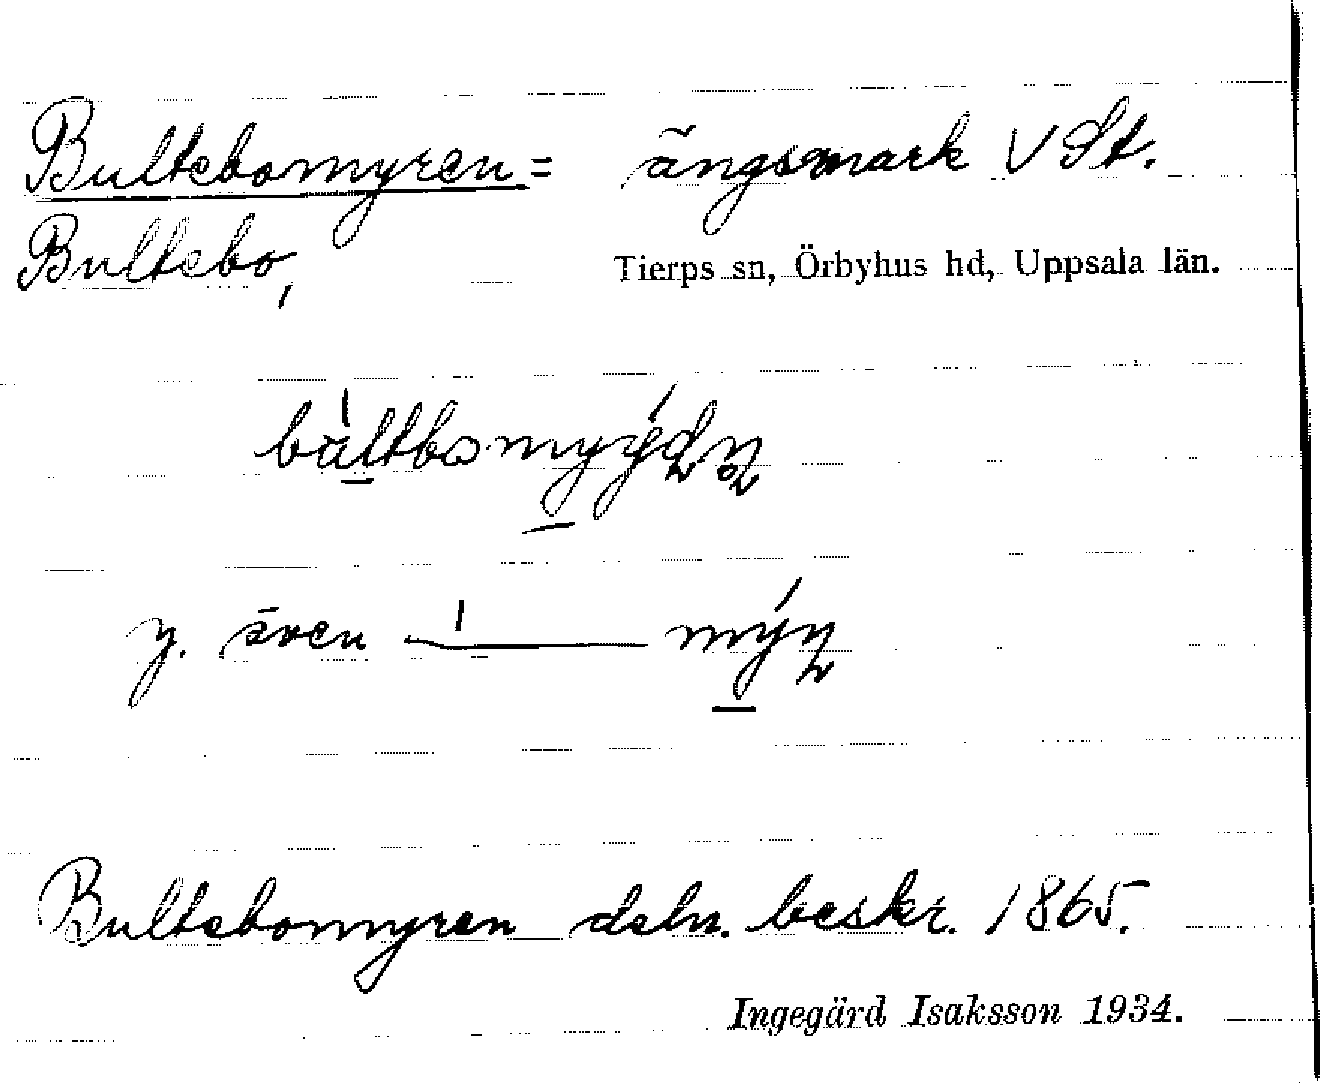 Bultebomyren = ängsmark V St.
Bultebo,
Tierps sn, Örbyhus hd, Uppsala län.
y. även mýn
Bultebomyren deln. beskr. 1865.
Ingegärd Isaksson 1934.